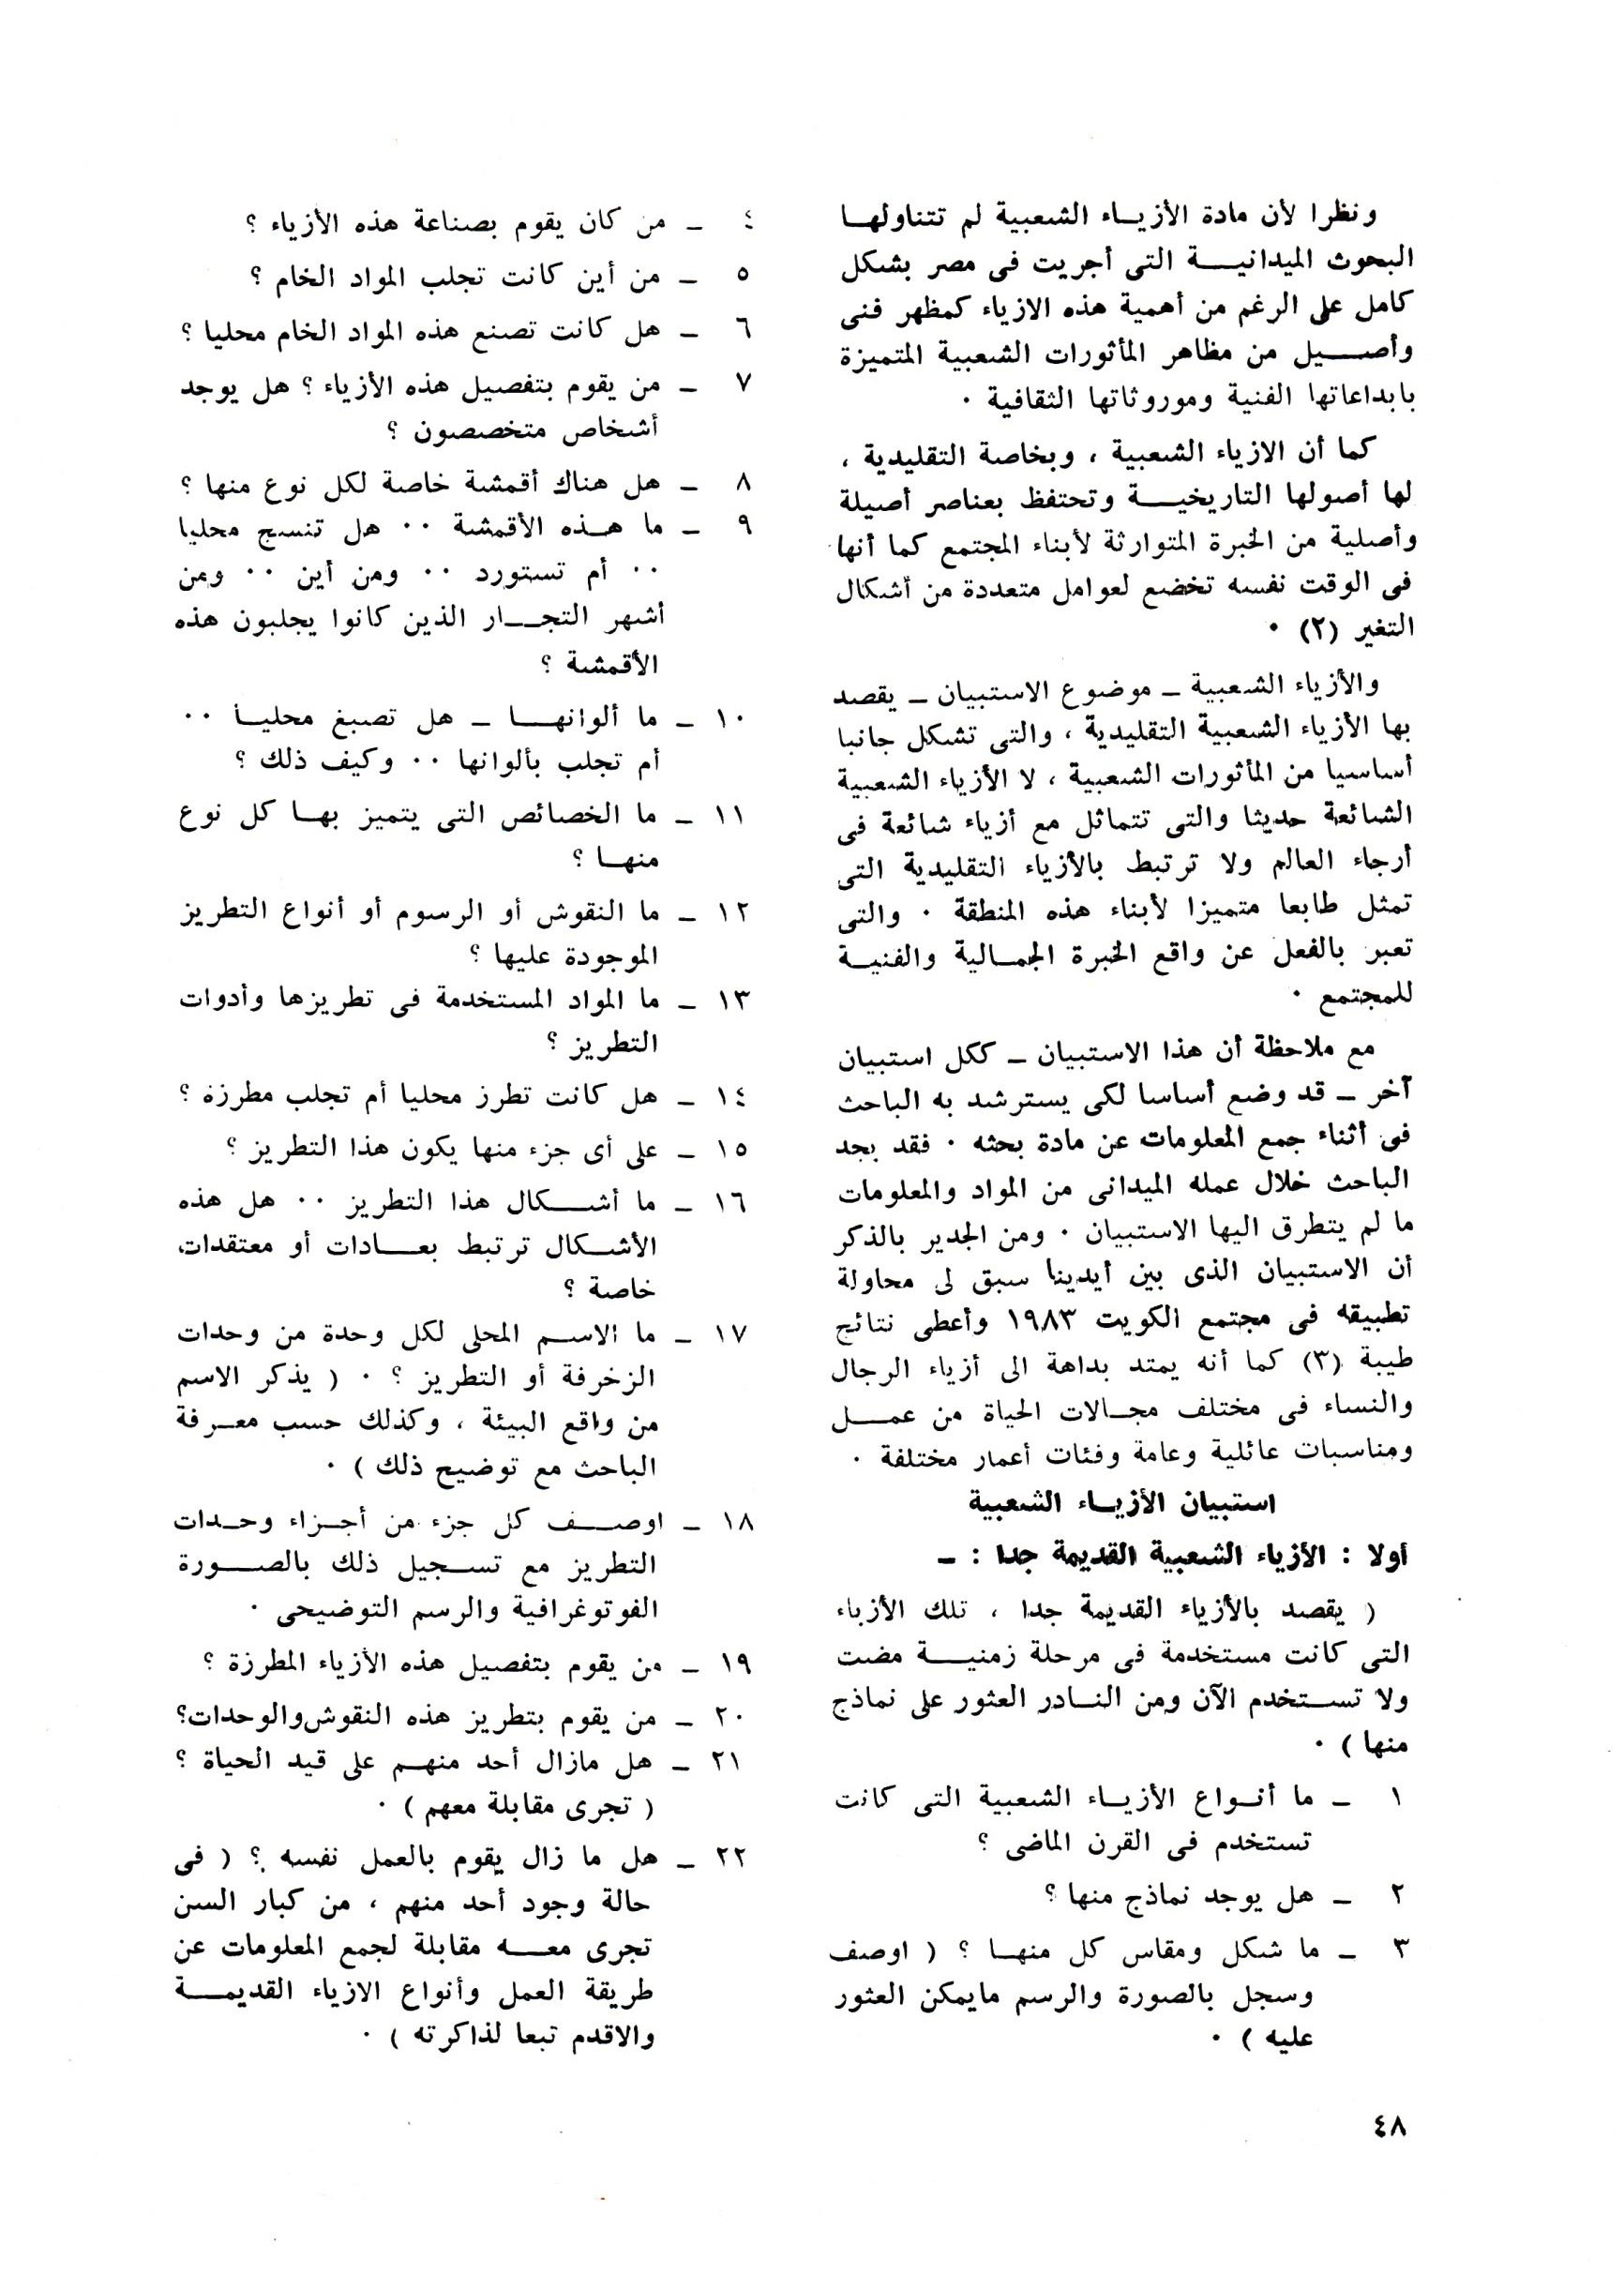 ونظرا لأن مادة الأزياء الشعبية لم تتناولها
البحوث الميدانية التى أجريت فى مصر بشكل
كامل على الرغم من أهمية هذه الازياء كمظهر فنى
وأصيل من مظاهر المأثورات الشعبية المتميزة
بابداعاتها الفنية وموروثاتها الثقافية ٠
كما أن الازياء الشعبية ، وبخاصة التقليدية ،
لها أصولها التاريخية وتحتفظ بعناصر أصيلة
وأصلية من الخبرة المتوارثة لأبناء المجتمع كما أنها
فى الوقت نفسه تخضع لعوامل متعددة من أشكال
التغير (٢) ٠
والأزياء الشعبية ــ موضوع الاستبيان ــ يقصد
بها الأزياء الشعبية التقليدية ، والتى تشكل جانبا
أساسيا من المأثورات الشعبية ، لا الأزياء الشعبية
الشائعة حديثا والتى تتماثل مع أزياء شائعة فى
أرجاء العالم ولا ترتبط بالأزياء التقليدية التى
تمثل طابعا متميزا لأبناء هذه المنطقة ٠ والتى
تعبر بالفعل عن واقع الخبرة الجمالية والفنية
للمجتمع ٠
مع ملاحظة أن هذا الاستبيان ــ ككل استبيان
آخر ــ قد وضع أساسا لكى يسترشد به الباحث
فى أثناء جمع المعلومات عن مادة بحثه ٠ فقد يجد
الباحث خلال عمله الميدانى من المواد والمعلومات
ما لم يتطرق اليها الاستبيان ٠ ومن الجدير بالذكر
أن الاستبيان الذى بين أيدينا سبق لى محاولة
تطبيقه فى مجتمع الكويت ١٩٨٣ وأعطى نتائج
طيبة (٣) كما أنه يمتد بداهة الى أزياء الرجال
والنساء فى مختلف مجالات الحياة من عمل
ومناسبات عائلية وعامة وفئات أعمار مختلفة ٠
استبيان الأزياء الشعبية
أولا : الأزياء الشعبية القديمة جدا : ــ
( يقصد بالأزياء القديمة جدا ، تلك الأزياء
التى كانت مستخدمة فى مرحلة زمنية مضت
ولا تستخدم الآن ومن النادر العثور على نماذج
منها ) ٠
١ ــ ما أنواع الأزياء الشعبية التى كانت
تستخدم فى القرن الماضى ؟
٢ ــ هل يوجد نماذج منها ؟
٣ ــ ما شكل ومقاس كل منها ؟ ( اوصف
وسجل بالصورة والرسم مايمكن العثور
عليه ) ٠
٤ ــ من كان يقوم بصناعة هذه الأزياء ؟
٥ ــ من أين كانت تجلب المواد الخام ؟
٦ ــ هل كانت تصنع هذه المواد الخام محليا ؟
٧ ــ من يقوم بتفصيل هذه الأزياء ؟ هل يوجد
أشخاص متخصصون ؟
٨ ــ هل هناك أقمشة خاصة لكل نوع منها ؟
٩ ــ ما هذه الأقمشة ٠٠ هل تنسج محليا
٠٠ أم تستورد ٠٠ ومن أين ٠٠ ومن
أشهر التجار الذين كانوا يجلبون هذه
الأقمشة ؟
١٠ ــ ما ألوانها ــ هل تصبغ محليا ٠٠
أم تجلب بألوانها ٠٠ وكيف ذلك ؟
١١ ــ ما الخصائص التى يتميز بها كل نوع
منها ؟
١٢ ــ ما النقوش أو الرسوم أو أنواع التطريز
الموجودة عليها ؟
١٣ ــ ما المواد المستخدمة فى تطريزها وأدوات
التطريز ؟
١٤ ــ هل كانت تطرز محليا أم تجلب مطرزة ؟
١٥ ــ على أى جزء منها يكون هذا التطريز ؟
١٦ ــ ما أشكال هذا التطريز ٠٠ هل هذه
الأشكال ترتبط بعادات أو معتقدات
خاصة ؟
١٧ ــ ما الاسم المحلى لكل وحدة من وحدات
الزخرفة أو التطريز ؟ ٠ ( يذكر الاسم
من واقع البيئة ، وكذلك حسب معرفة
الباحث مع توضيح ذلك ) ٠
١٨ ــ اوصف كل جزء من أجزاء وحدات
التطريز مع تسجيل ذلك بالصورة
الفوتوغرافية والرسم التوضيحى ٠
١٩ ــ من يقوم بتفصيل هذه الأزياء المطرزة ؟
٢٠ ــ من يقوم بتطريز هذه النقوش والوحدات؟
٢١ ــ هل مازال أحد منهم على قيد الحياة ؟
( تجرى مقابلة معهم ) ٠
٢٢ ــ هل ما زال يقوم بالعمل نفسه ؟ ( فى
حالة وجود أحد منهم ، من كبار السن
تجرى معه مقابلة لجمع المعلومات عن
طريقة العمل وأنواع الازياء القديمة
والاقدم تبعا لذاكرته ) ٠
٤٨